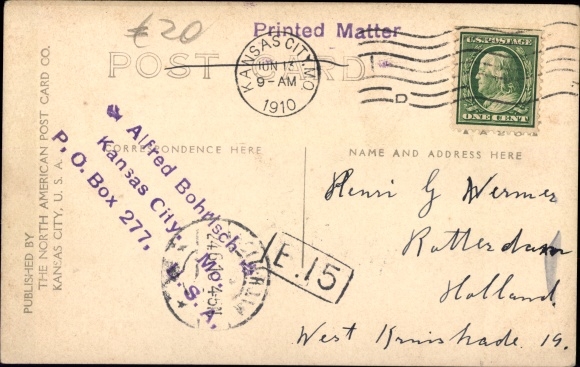 €20
Printed Matter
POST CARD
KANSAS CITY, MO.
JUN 13
9-AM
1910
D
U.S. POSTAGE
ONE CENT
CORRESPONDENCE HERE
NAME AND ADDRESS HERE
Alfred Bohrisch
Kansas City, Mo.
P. O. Box 277, U.S.A.
PUBLISHED BY
THE NORTH AMERICAN POST CARD CO.
KANSAS CITY, U. S. A.
E.15
Henri G Wermer
Rotterdam
Holland.
West Kruiskade 19.